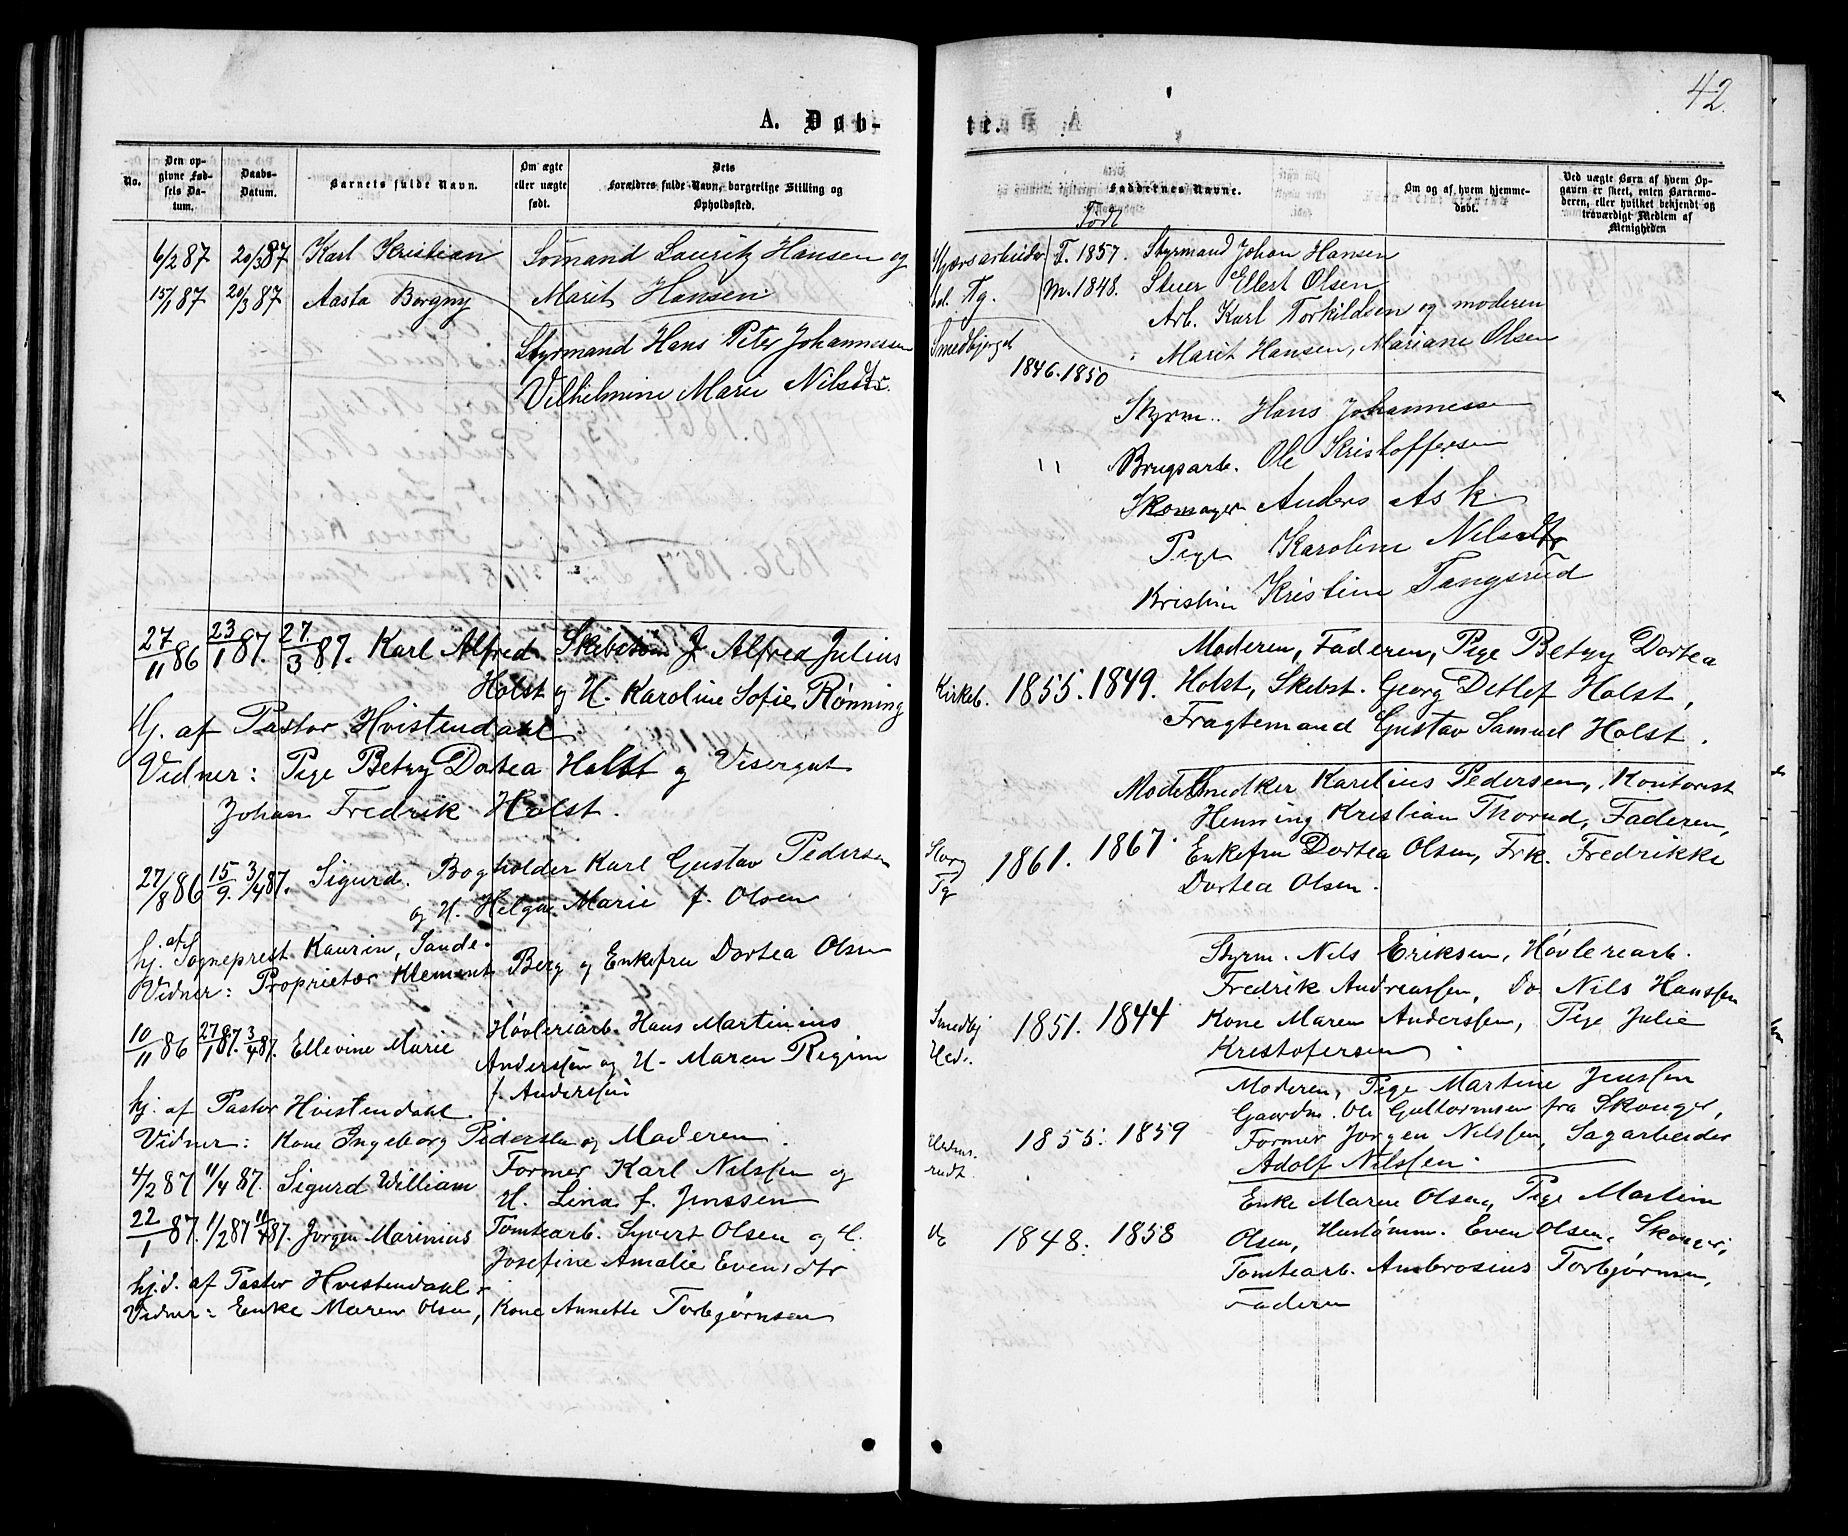 42.
A. Døb-
te.
No.
Den op-
givne Fød-
sels Da-
tum.
Daabs-
Datum.
Barnets fulde Navn.
Om ægte
eller uægte
født.
Dets
Forældres fulde Navn, borgerlige Stilling og
Opholdssted.
Faddernes Navne.
Født
Om og af hvem hjemme-
døbt.
Ved uægte Børn af hvem Op-
gaven er skeet, enten Barnemo-
deren, eller hvilket bekjendt og
troværdigt Medlem af
Menigheden
6/2 87 20/3 87 Karl Kristian Sømand Lauritz Hansen og
15/1 87 20/3 87 Aasta Borgny Marit Hansen.
Styrmand Hans Peter Johannessen
Vilhelmine Marie Nilsdtr.
27/11 86 23/1 87. 27/3 87. Karl Alfred Skibstøm J. Alfred Julius
Holst og H. Karoline Sofie Rønning
Hj. af Pastor Hvistendahl
Vidner: Pige Betzy Dortea Holst og Visergut
Johan Fredrik Holst.
27/8 86 15/9. 3/4 87. Sigurd. Bogholder Karl Gustav Pedersen
og H. Helga Marie f. Olsen
hj. af Sogneprest Kaurin, Sande.
Vidner: Proprietær Klement Berg og Enkefru Dortea Olsen
10/11 86 27/1 87. 3/4 87. Ellevine Marie Høvleriarb. Hans Martinius
Anderssen og H. Maren Regine
f. Anderssen
hj. af Pastor Hvistendahl.
Vidner: Kone Ingeborg Pedersen og Moderen.
4/2 87 11/4 87. Sigurd William Former Karl Nilssen og
H. Lina f. Jenssen
22/1 87. 1/2 87 11/4 87. Jørgen Marinius Tomtearb. Syvert Olsen og H.
Josefine Amalie Evensdtr
hj.d. af Pastor Hvistendahl.
Vidner: Enke Maren Olsen, Kone Annette Torbjørnsen
F. 1857. Styrmand Johan Hansen
Tg. M. 1848. Stuer Ellert Olsen
Arb. Karl Torkildsen og moderen
Marit Hansen, Mariane Olsen
Smedbjerget 1846. 1850
Styrm. Hans Johannessen
" Brugsarb. Ole Kristoffersen
Skomager Anders Ask
Pige Karoline Nilsdtr
Kristine Tangsrud
Moderen, Faderen, Pige Betzy Dortea
Kirkeb. 1855. 1849. Holst, Skibst. Georg Detlef Holst,
Fragtemand Gustav Samuel Holst.
Modelsnedker Karelius Pedersen, Kontorist
Henning Kristian Thorud, Faderen,
Storg Tg 1861. 1867. Enkefru Dortea Olsen, Frk. Fredrikke
Dortea Olsen.
Styrm. Nils Eriksen, Høvleriarb.
Fredrik Andreassen, Do Nils Hanssen
Smedbj 1851. 1844 Kone Maren Anderssen, Pige Julie
Kristofersen.
Moderen, Pige Martine Jenssen
Gaardm. Ole Guttormsen fra Skouger,
1855. 1859 Former Jørgen Nilssen, Sagarbeider
Adolf Nilssen.
Enke Maren Olsen, Pige Martine
1848. 1858 Olsen, Hustømm. Even Olsen, Skouger,
Tomtearb. Ambrosius Torbjørnsen,
Faderen